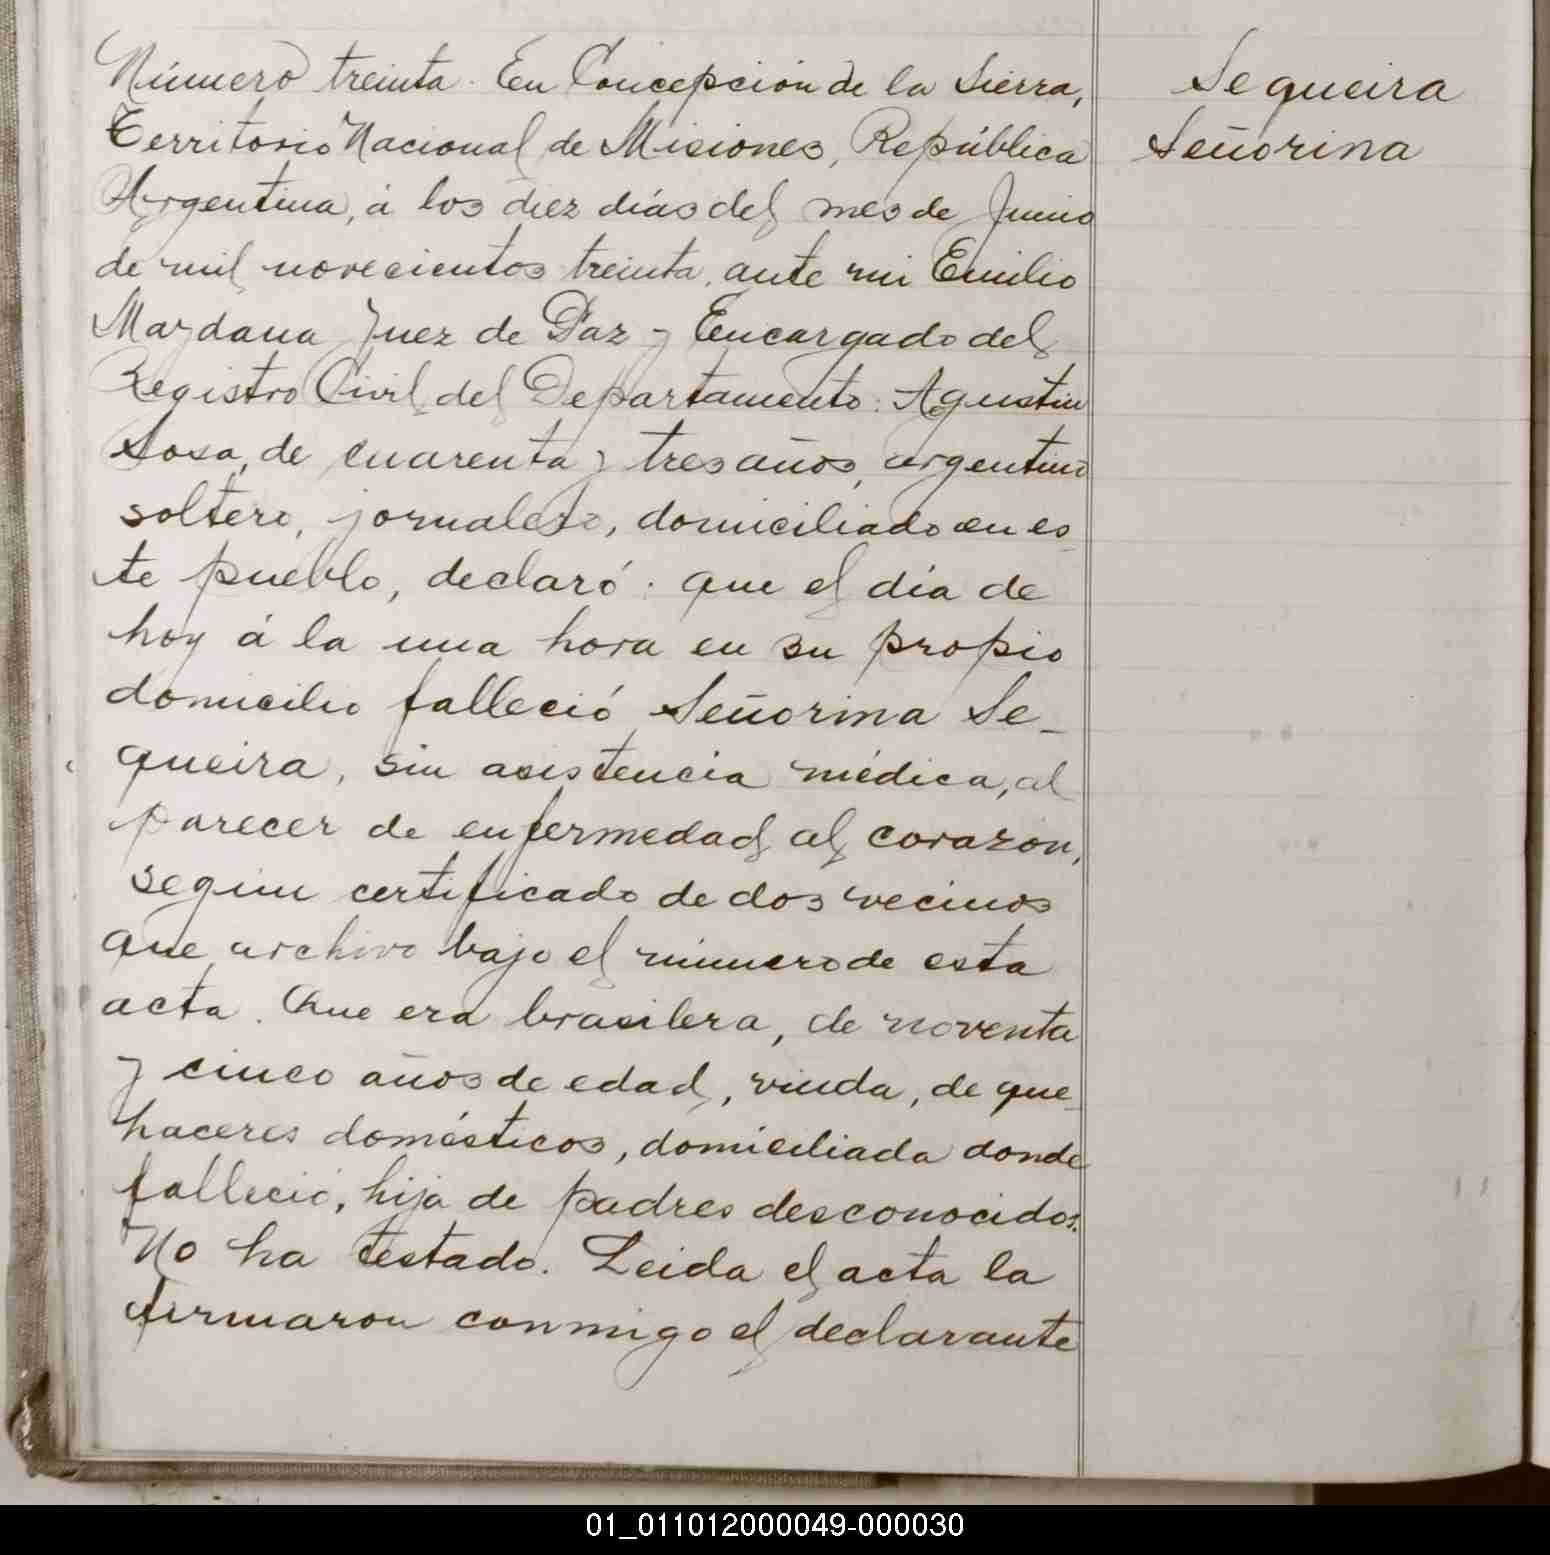 Número treinta. En Concepción de la Sierra,
Territorio Nacional de Misiones, República
Argentina, á los diez días del mes de Junio
de mil novecientos treinta, ante mi Emilio
Maydana Juez de Paz y Encargado del
Registro Civil del Departamento: Agustin
Sosa, de cuarenta y tres años, argentino
soltero, jornalero, domiciliado en es
te pueblo, declaró: que el día de
hoy á la una hora en su propio
domicilio falleció Señorina Se-
queira, sin asistencia médica, al
parecer de enfermedad al corazón,
según certificado de dos vecinos
que archivo bajo el número de esta
acta. Que era brasilera, de noventa
y cinco años de edad, viuda, de que
haceres domésticos, domiciliada donde
falleció, hija de padres desconocidos.
No ha testado. Leida el acta la
firmaron conmigo el declarante
Sequeira
Señorina
01_011012000049-000030